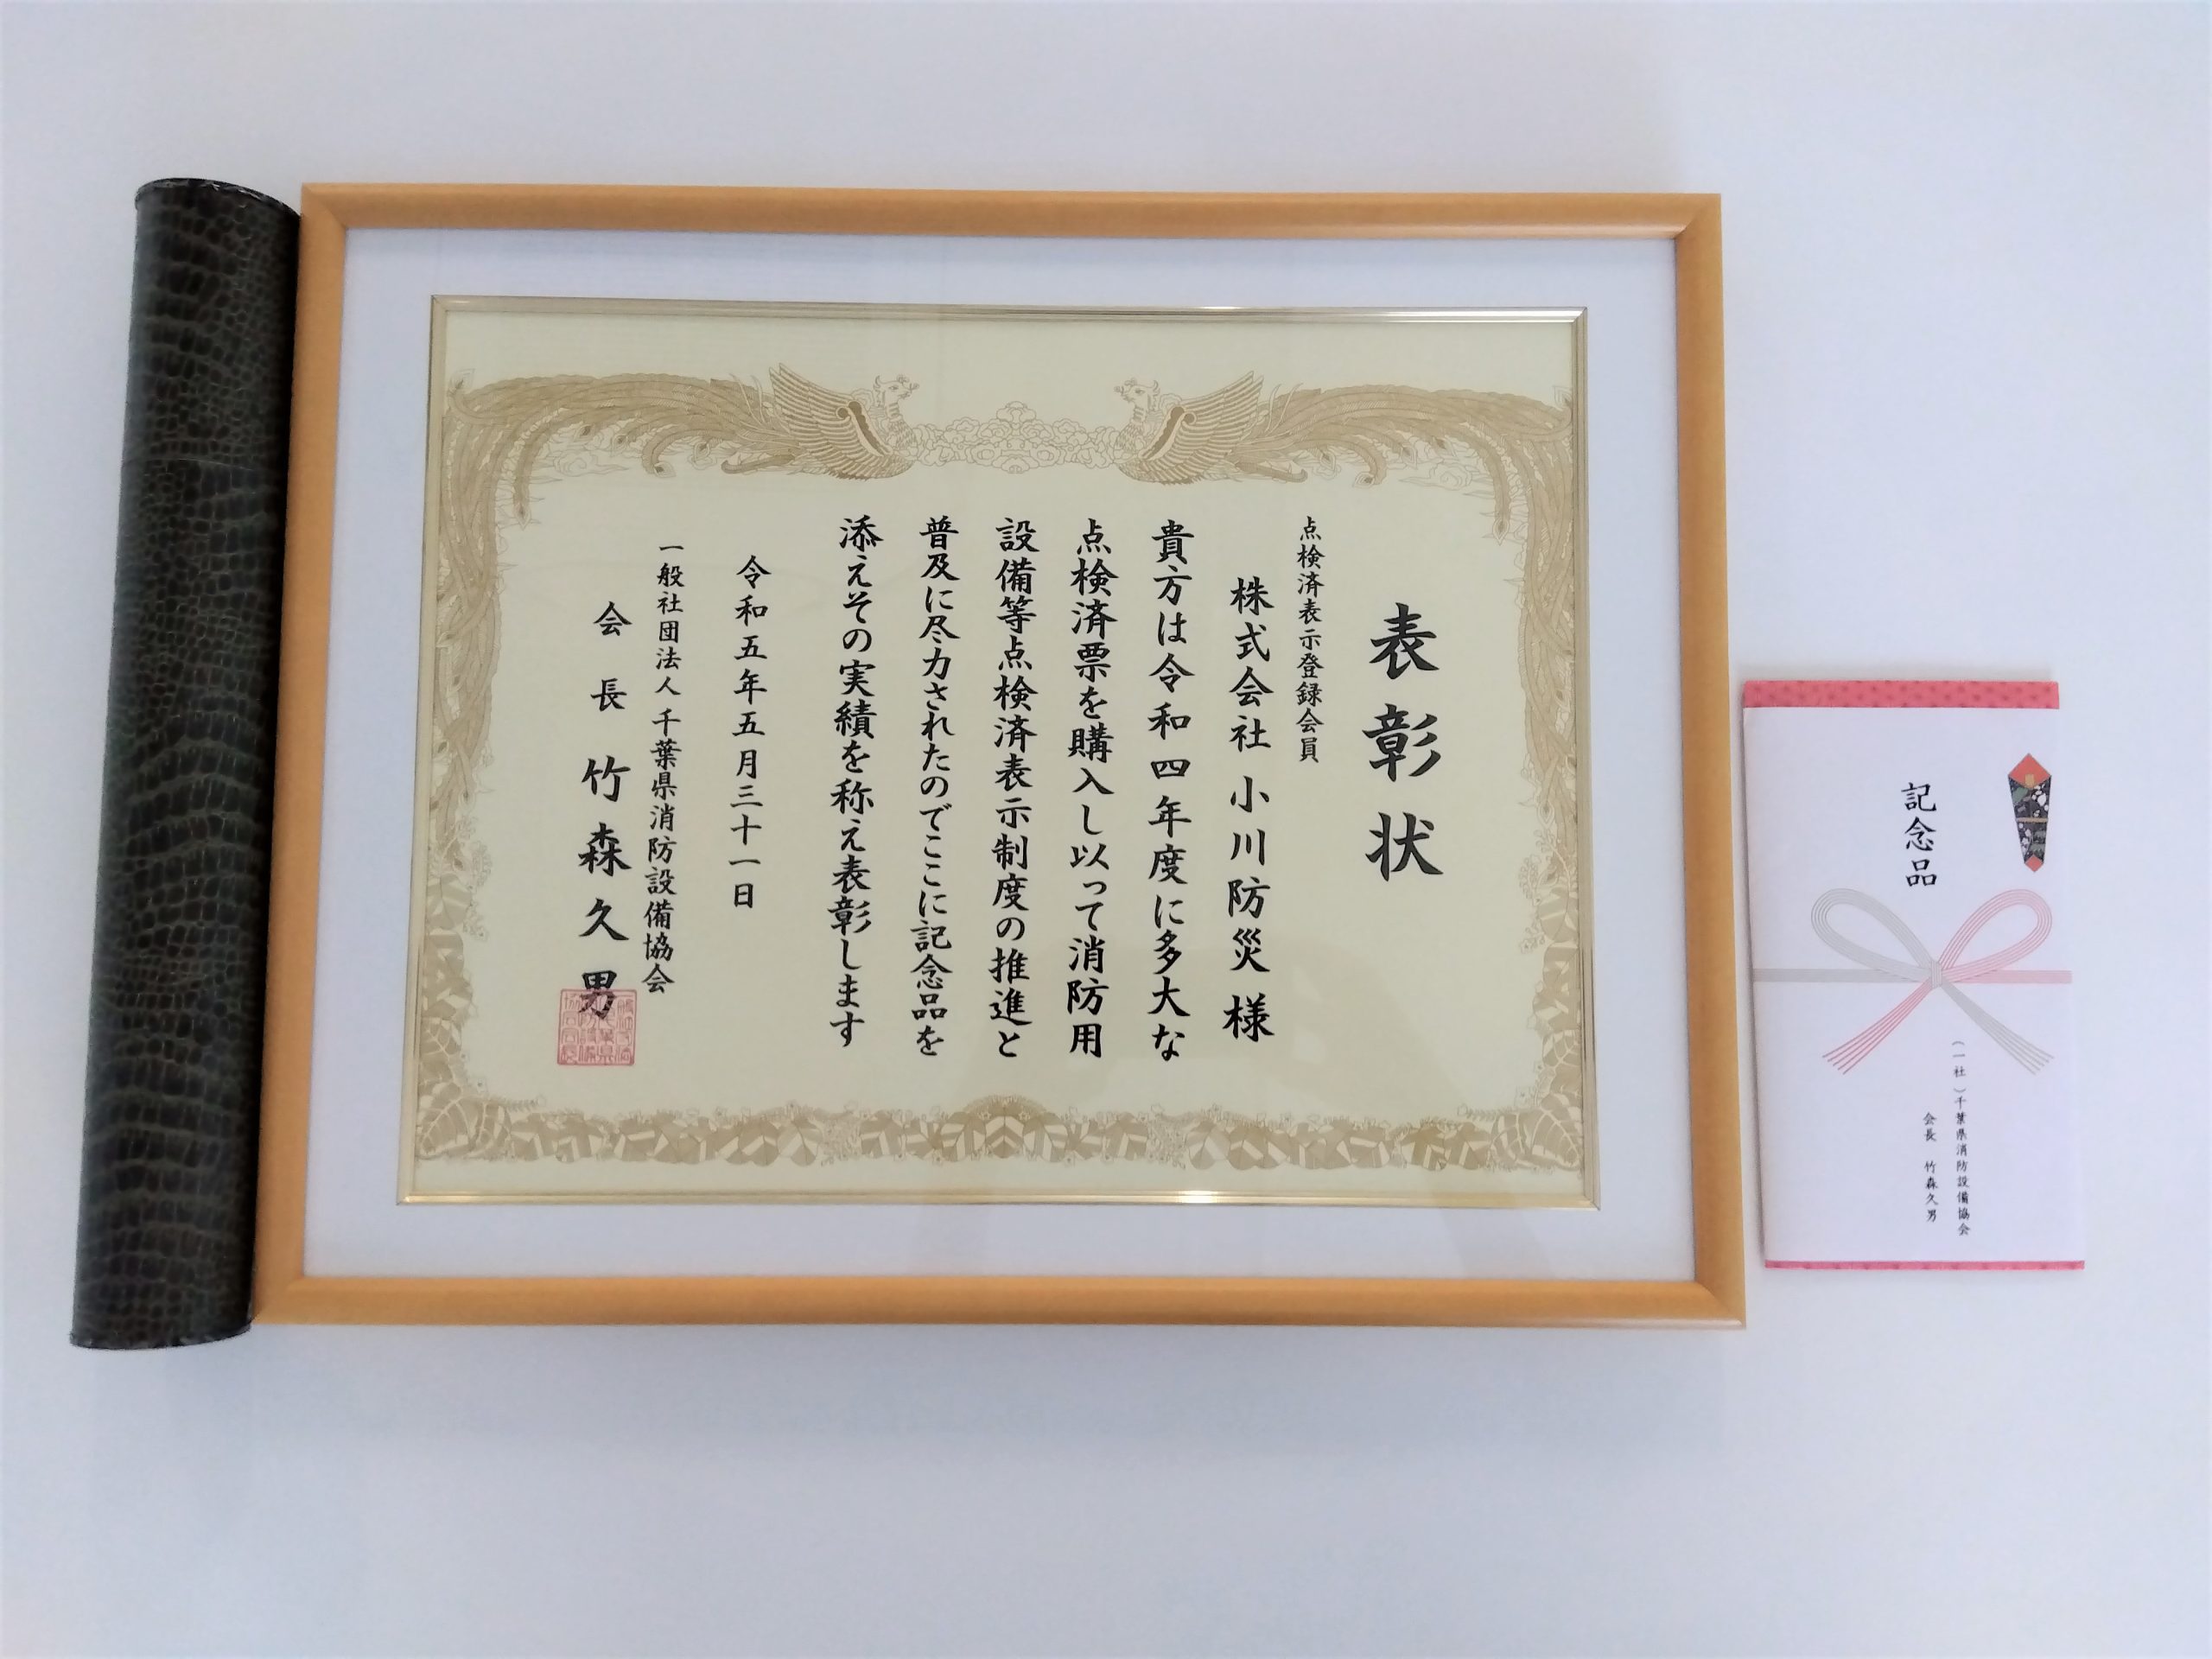 表彰状
点検済表示登録会員
株式会社 小川防災 様
貴方は令和四年度に多大な
点検済票を購入し以って消防用
設備等点検済表示制度の推進と
普及に尽力されたのでここに記念品を
添えその実績を称え表彰します
令和五年五月三十一日
一般社団法人 千葉県消防設備協会
会長 竹森久男
記念品
（一社）千葉県消防設備協会
会長 竹森久男